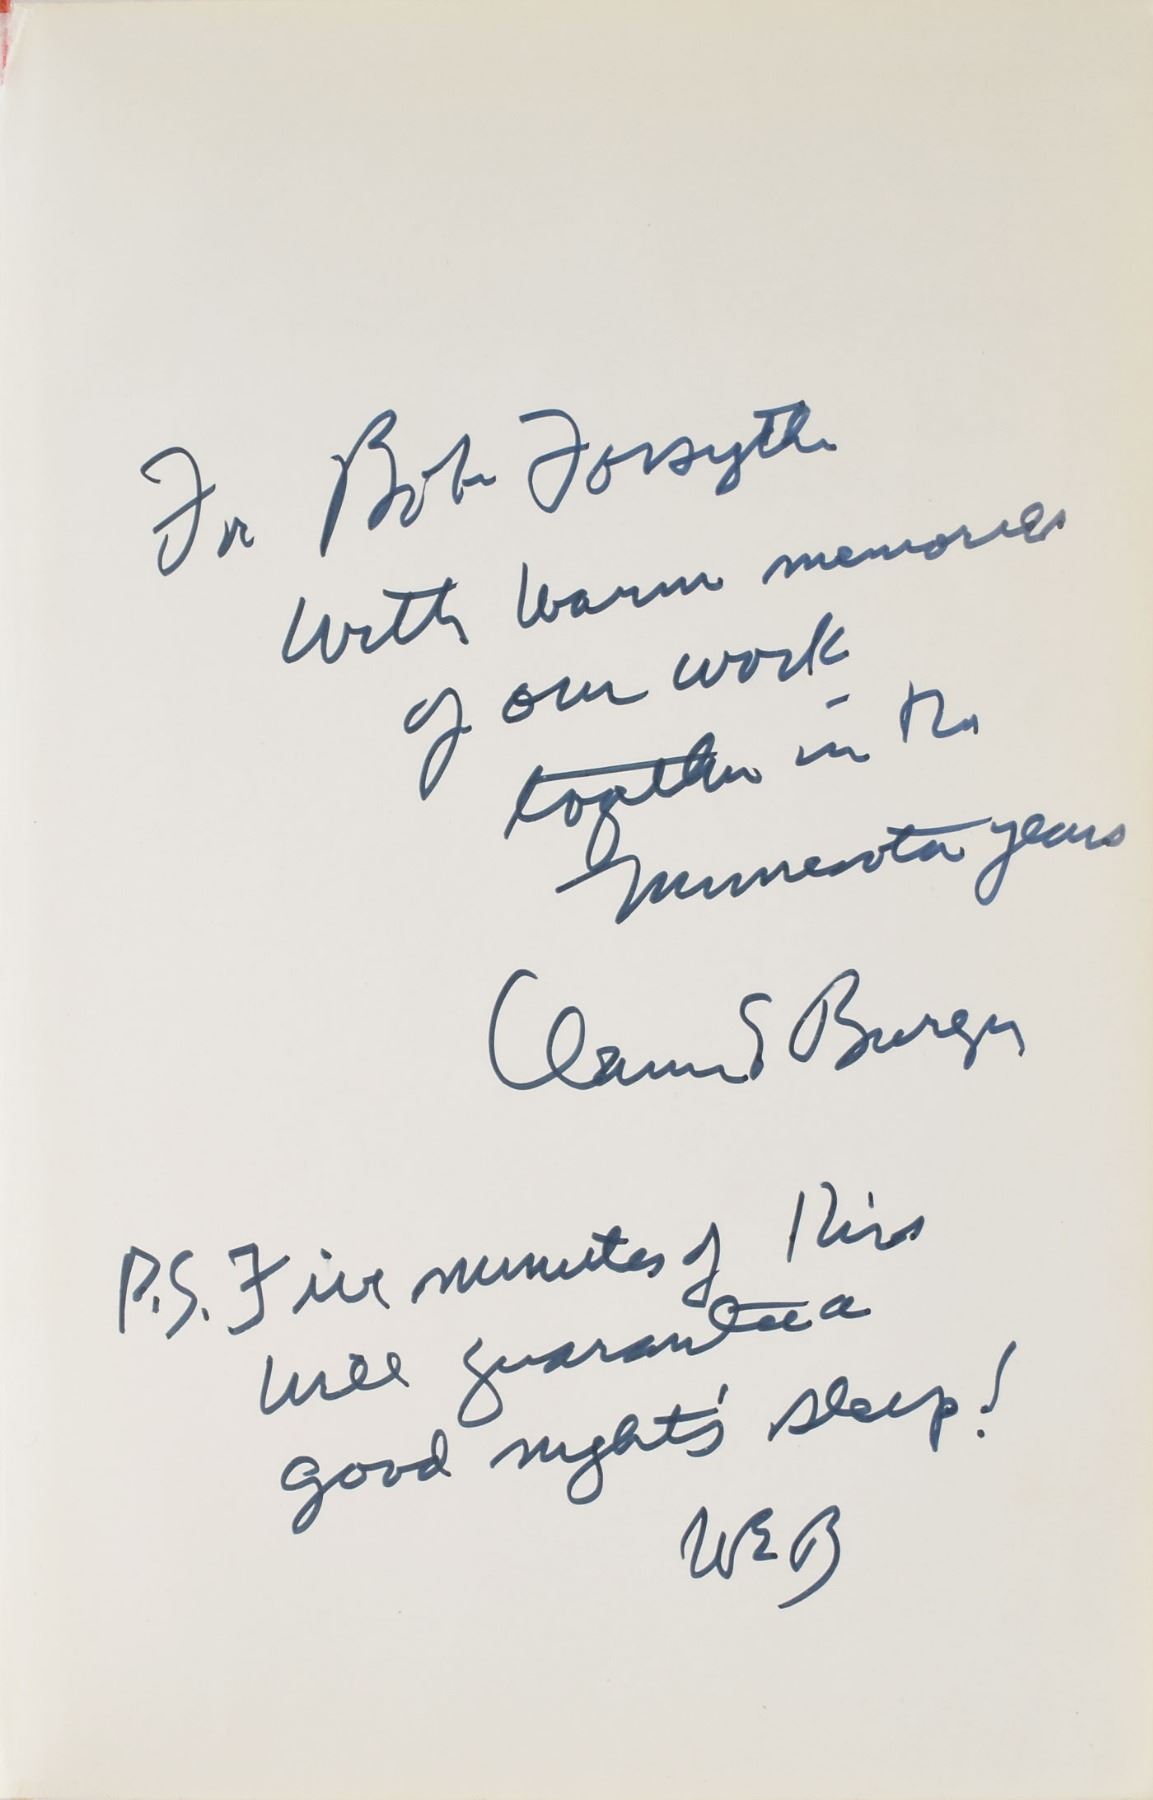 For Bob Forsythe
with warm memories
of our work
together in the
Minnesota years
Warren E Burger
P.S. Five minutes of this
will guarantee a
good night's sleep!
WEB